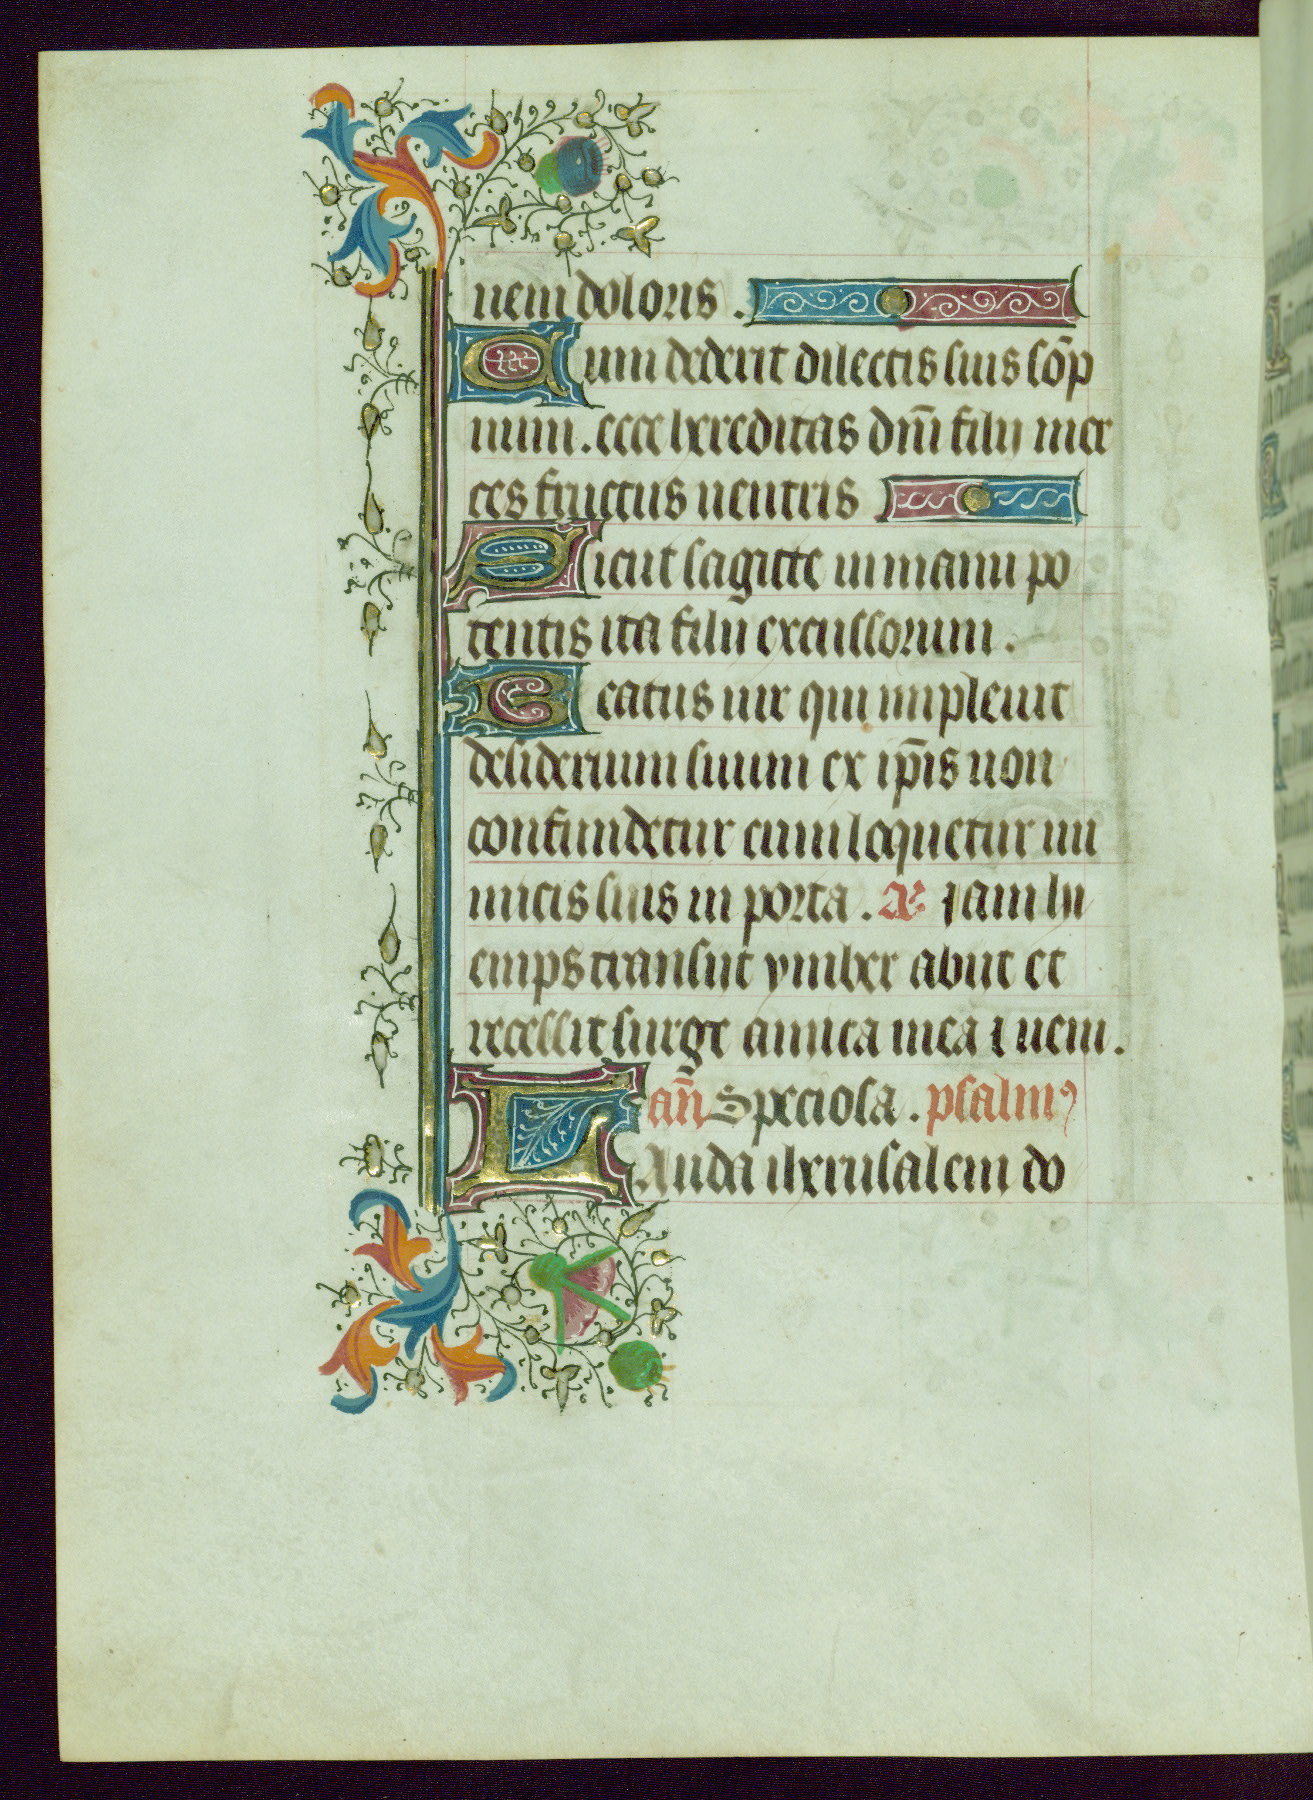 nem doloris .
Cum dederit dilectis suis so̅p
num . ecce hereditas dn̅i filij mer
ces fructus uentris
Sicut sagitte in manu po
tentis ita filii excussorum .
Beatus uir qui impleuit
desiderium suum ex ip̅is non
confundetur cum loquetur ini
micis suis in porta . A᷒ Jam hy
emps transiit ymber abiit et
recessit surge amica mea ⁊ ueni .
an̅ Speciosa . psalmꝰ
LAuda iherusalem do